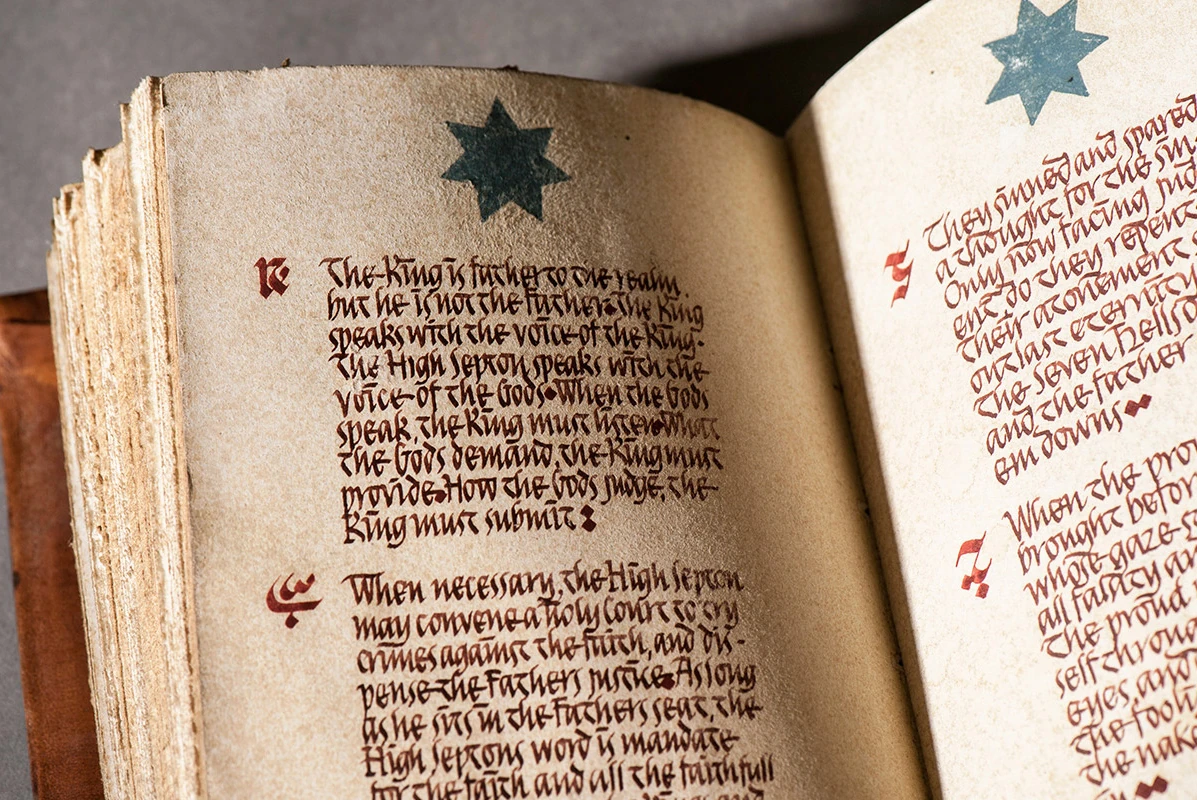 The King is father to the realm,
but he is not the Father. The King
speaks with the voice of the King.
The High Septon speaks with the
voice of the Gods. When the Gods
speak, the King must listen. What
the Gods demand, the King must
provide. How the Gods judge, the
King must submit
When necessary, the High Septon
may convene a Holy Court to try
crimes against the faith, and dis-
pense the Fathers justice. As long
as he sits in the Fathers seat, the
High Septons word is mandate
for the faith and all the faithfull
They sinned and spared
a thought for the
Only now facing
ent do they repent
their atonement
outlast eternity
the Seven Hells
and the Father
em downs
When the
brought
whose gaze
all falsity
the proud
self
eyes, and
the
the